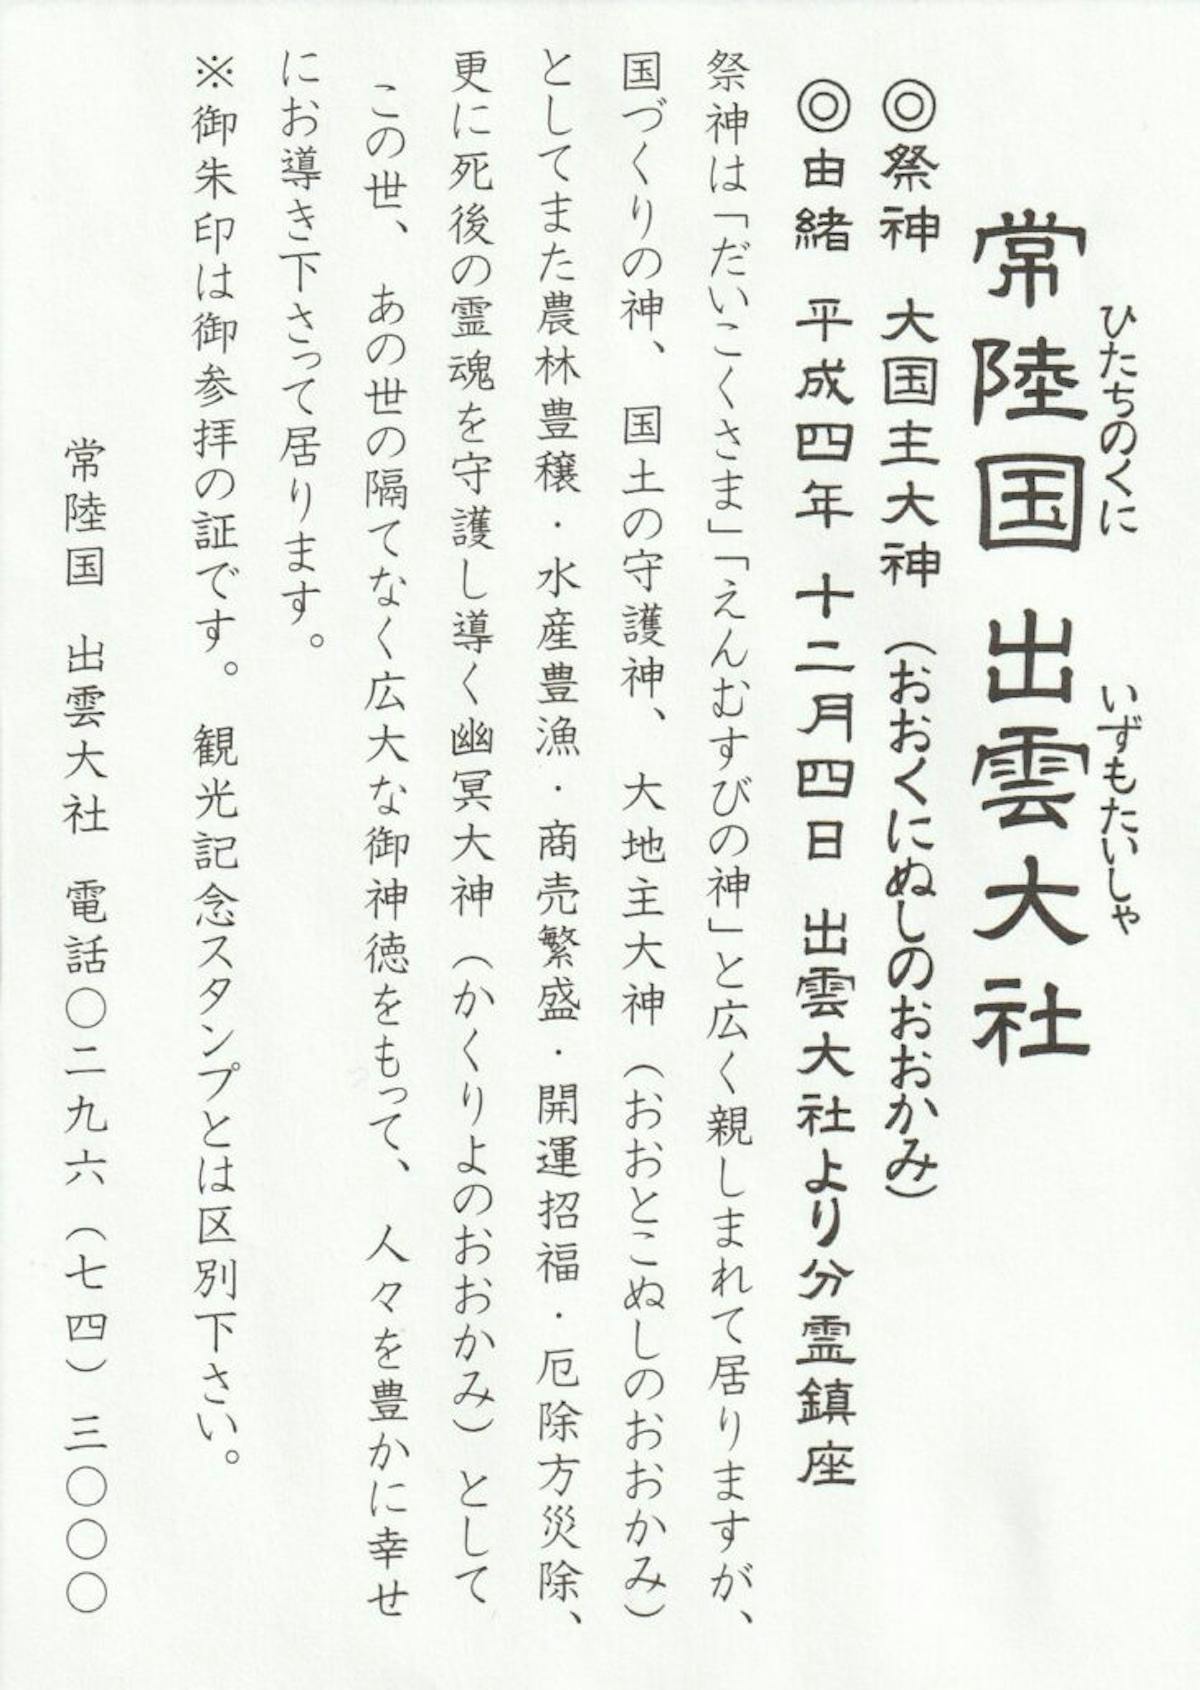 常陸国 出雲大社
ひたちのくに いずもたいしゃ
◎祭神 大国主大神（おおくにぬしのおおかみ）
◎由緒 平成四年 十二月四日 出雲大社より分霊鎮座
祭神は「だいこくさま」「えんむすびの神」と広く親しまれて居りますが、
国づくりの神、国土の守護神、大地主大神（おおとこぬしのおおかみ）
としてまた農林豊穣・水産豊漁・商売繁盛・開運招福・厄除方災除、
更に死後の霊魂を守護し導く幽冥大神（かくりよのおおかみ）として
この世、あの世の隔てなく広大な御神徳をもって、人々を豊かに幸せ
にお導き下さって居ります。
※御朱印は御参拝の証です。観光記念スタンプとは区別下さい。
常陸国 出雲大社 電話〇二九六（七四）三〇〇〇